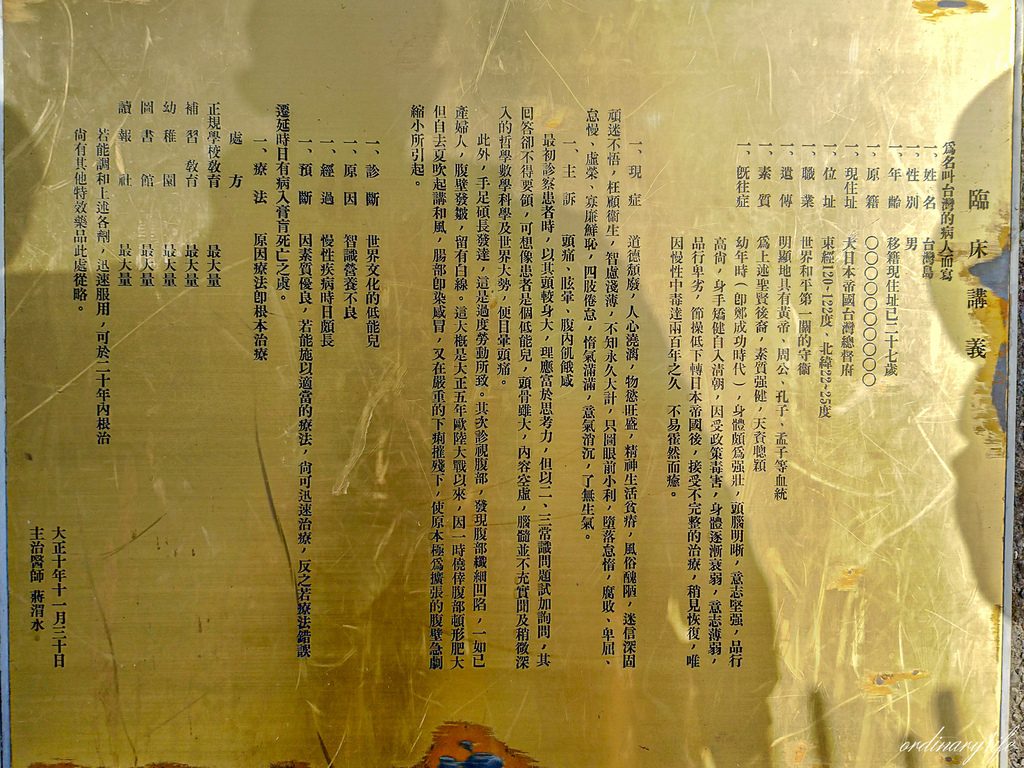 臨床講義
為名叫台灣的病人而寫
一、姓名 台灣島
一、性別 男
一、年齡 移籍現住址已二十七歲
一、原籍 ○○○○○○○○○○
一、現住址 大日本帝國台灣總督府
一、位址 東經120~122度、北緯22~25度
一、職業 世界和平第一關的守衛
一、遺傳 明顯地具有黃帝、周公、孔子、孟子等血統
一、素質 為上述聖賢後裔，素質强健，天資聰穎
一、旣往症 幼年時（卽鄭成功時代），身體頗為强壯，頭腦明晰，意志堅强，品行
高尙，身手矯健自入淸朝，因受政策毒害，身體逐漸衰弱，意志薄弱，
品行卑劣，節操低下轉日本帝國後，接受不完整的治療，稍見恢復，唯
因慢性中毒達兩百年之久 不易霍然而癒。
一、現症 道德頹廢，人心澆漓，物慾旺盛，精神生活貧瘠，風俗醜陋，迷信深固
頑迷不悟，枉顧衞生，智慮淺薄，不知永久大計，只圖眼前小利，墮落怠惰，腐敗、卑屈、
怠慢、虛榮、寡廉鮮恥，四肢倦怠，惰氣滿滿，意氣消沉，了無生氣。
一、主訴 頭痛、眩暈、腹內飢餓感
最初診察患者時，以其頭較身大，理應富於思考力，但以二、三常識問題試加詢問，其
回答卻不得要領，可想像患者是個低能兒，頭骨雖大，內容空虛，腦髓並不充實聞及稍微深
入的哲學數學科學及世界大勢，便目暈頭痛。
此外，手足碩長發達，這是過度勞動所致。其次診視腹部，發現腹部纖細凹陷，一如已
產婦人，腹壁發皺，留有白線。這大概是大正五年歐陸大戰以來，因一時僥倖腹部頓形肥大
但自去夏吹起講和風，腸部卽染感冒，又在嚴重的下痢摧殘下，使原本極為擴張的腹壁急劇
縮小所引起。
一、診斷 世界文化的低能兒
一、原因 智識營養不良
一、經過 慢性疾病時日頗長
一、預斷 因素質優良，若能施以適當的療法，尙可迅速治療，反之若療法錯誤
遷延時日有病入膏肓死亡之虞。
一、療法 原因療法卽根本治療
處方
正規學校敎育 最大量
補習敎育 最大量
幼稚園 最大量
圖書館 最大量
讀報社 最大量
若能調和上述各劑，迅速服用，可於二十年內根治
尙有其他特效藥品此處從略。
大正十年十一月三十日
主治醫師 蔣渭水。
ordinary life